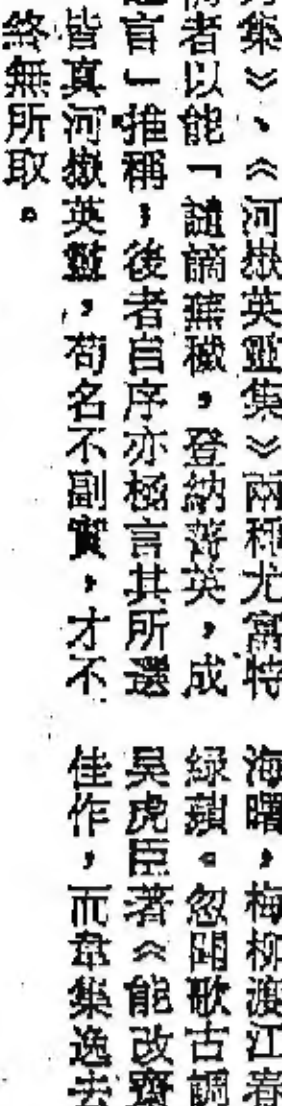 集》、《河嶽英靈集》兩種尤富特
者以能「譴謫蕪穢，登納菁英，成
言」推稱，後者自序亦極言其所選
皆真河嶽英靈，苟名不副實，才不
終無所取。
海曙，梅柳渡江春
綠蘋。忽聞歌古調
吳虎臣著《能改齋
佳作，而韋集逸去